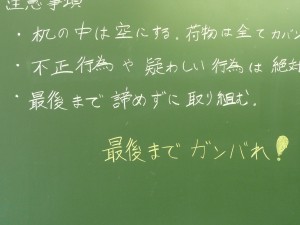 注意事項
・机の中は空にする。荷物は全てカバン
・不正行為や疑わしい行為は絶対
・最後まで諦めずに取り組む。
最後までガンバれ!